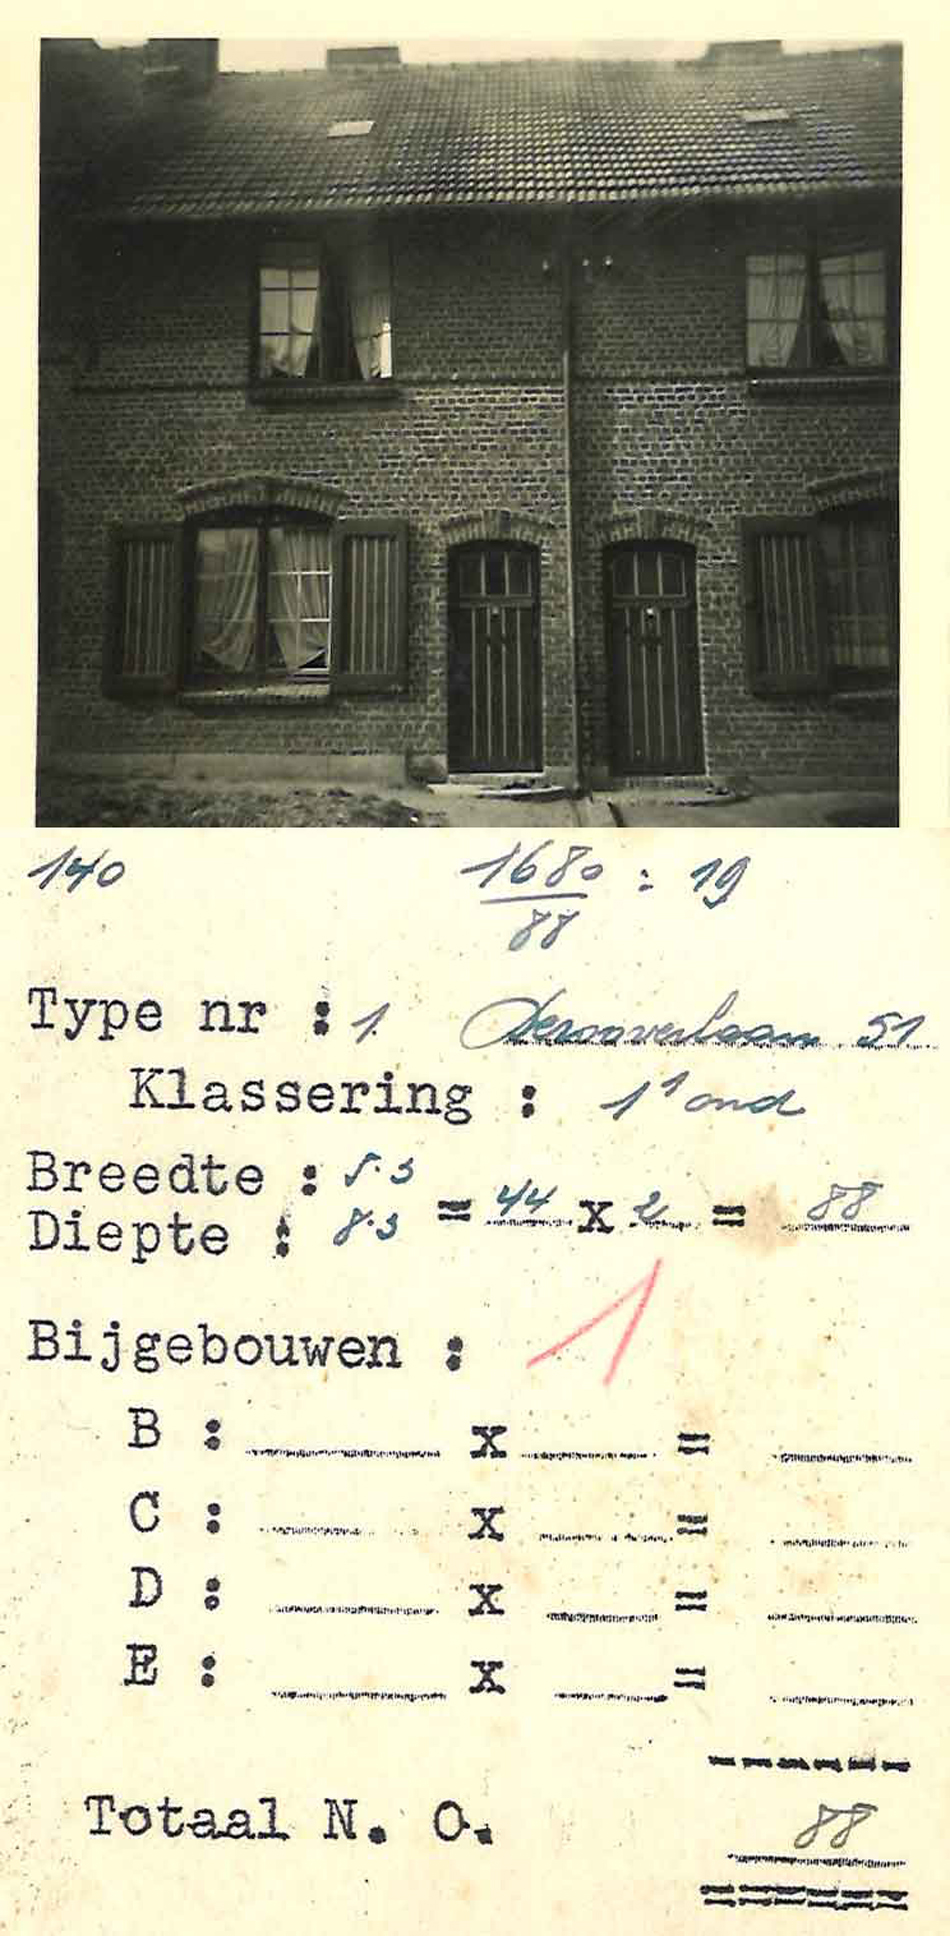 140 1680 : 19
88
Type nr : 1. Derooverlaan 51
Klassering : 1° ond
Breedte : 5.3
Diepte : 8.3 = 44 x 2 = 88
Bijgebouwen : 1
B : x =
C : x =
D : x =
E : x =
Totaal N. O. 88